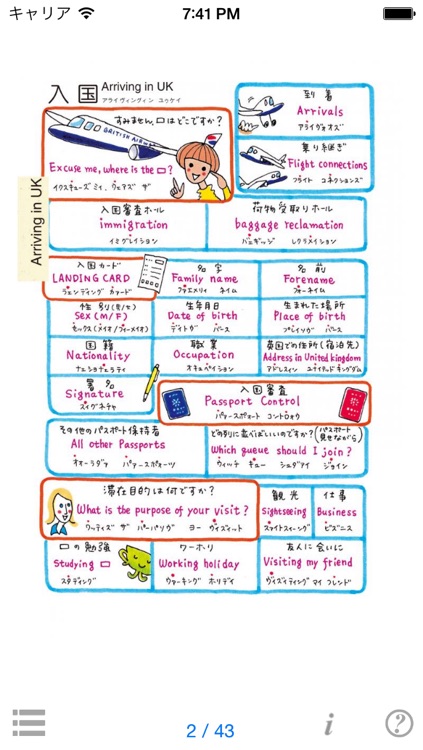 キャリア 7:41 PM
入国 Arriving in UK
アライヴィングイン ユゥケイ
Arriving in UK
すみません、□はどこですか?
BRITISH AIRWAYS
Excuse me, where is the □?
イクスキューズ ミィ、ウェアズ ザ
到着
Arrivals
アライヴォオズ
乗り継ぎ
Flight connections
フライト コネクションズ
入国審査ホール
immigration
イミグレイション
荷物受取りホール
baggage reclamation
バェギッジ レクラメイション
入国カード
LANDING CARD
名字
Family name
ネイム
名前
Forename
フォーネイム
性別(男/女)
Sex (M/F)
生年月日
Date of birth
デイトヴ バース
生まれた場所
Place of birth
プレイソヴ バース
国籍
Nationality
ナェショナェラティ
職業
Occupation
オキュペイション
英国での住所(宿泊先)
Address in United kingdom
アドレスイン ユナイテッドキングダム
署名
Signature
スィグネチャ
入国審査
Passport Control
パァースポート コントロォウ
その他のパスポート保持者
All other Passports
オオーラダァ パァースポォーツ
どの列に並べばいいのですか?(パスポート見せながら)
Which queue should I join?
ウィッチ キュー シュダアイ ジョイン
滞在目的は何ですか?
What is the purpose of your visit?
ワッティズ ザ パーパソヴ ヨー ヴィズィット
観光
Sightseeing
サイトスィーイング
仕事
Business
ビズニス
□の勉強
Studying □
スタディング
ワーホリ
Working holiday
ワァーキング ホリデイ
友人に会いに
Visiting my friend
ヴィズィティング マイ フレンド
2 / 43
i
?